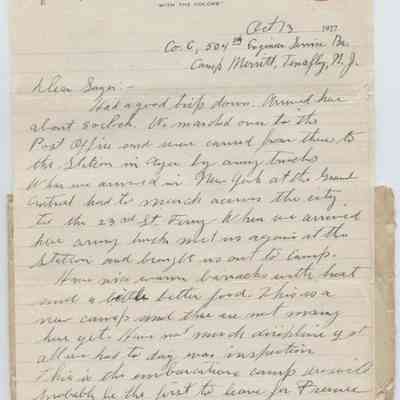 "WITH THE COLORS"
Oct 13 1917
Co. C, 504th Engineer Service Bn.
Camp Merritt, Tenafly, N. J.
Dear
Had a good trip down. Arrived here
about 8 oclock. We marched over to the
Post Office and were carried from there to
the Station in Ayer by army trucks
When we arrived in New York at the Grand
Central had to march across the city
to the 23rd St. Ferry When we arrived
here army truck met us again at the
Station and brought us out to Camp.
Have nice warm barracks with heat
and a better food. This is a
new camp and there are not many
here yet. Have not much discipline yet
all we had to day was inspection
This is the embarcation camp
probably be the first to leave for France